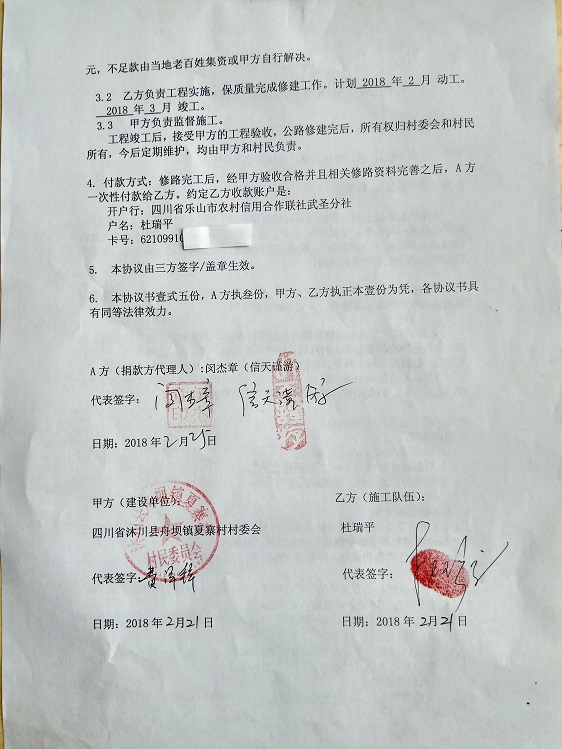 元，不足款由当地老百姓集资或甲方自行解决。
3.2 乙方负责工程实施，保质量完成修建工作。计划 2018 年 2 月 动工。
2018 年 3 月 竣工。
3.3 甲方负责监督施工。
工程竣工后，接受甲方的工程验收，公路修建完后，所有权归村委会和村民
所有，今后定期维护，均由甲方和村民负责。
4. 付款方式：修路完工后，经甲方验收合格并且相关修路资料完善之后，A方
一次性付款给乙方。约定乙方收款账户是：
开户行：四川省乐山市农村信用合作联社武圣分社
户名：杜瑞平
卡号：6210991
5. 本协议由三方签字/盖章生效。
6. 本协议书壹式五份，A方执叁份，甲方、乙方执正本壹份为凭，各协议书具
有同等法律效力。
A方（捐款方代理人）：闵杰章（信天谨游）
代表签字：闵杰章 信天谨游
日期：2018 年2月25日
甲方（建设单位）：
四川省沐川县舟坝镇夏寨村村委会
村民委员会
代表签字：
日期：2018 年2月21日
乙方（施工队伍）：
杜瑞平
代表签字：
日期：2018 年2月21日